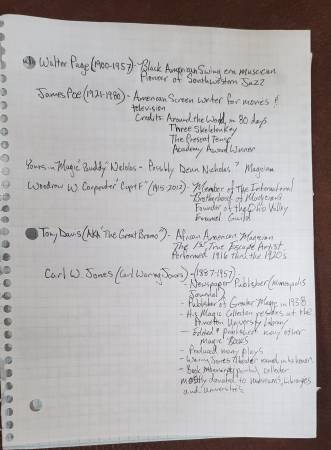 Walter Page (1900-1957) - Black American Swing era musician
Pioneer of Southwestern Jazz
James Poe (1921-1980) - American Screen writer for movies &
television
Credits: Around the World in 80 days
Three Skeleton Key
The Present Tense
Academy Award Winner
Yours in Magic "Buddy" - Possibly Magician
Woodrow W Carpenter (1915-2012) - Member of the International
Brotherhood of Magicians
Founder of the Ohio Valley
Enamel Guild
Tony Davis (AKA "The Great Bromo") - African American Magician
The 1st True Escape Artist
Performed 1916 thru the 1920s
Carl W. Jones (Carl Waring Jones) - (1887-1957)
- Newspaper Publisher (Minneapolis
Journal)
- Publisher of Greater Magic in 1938
- His Magic Collection resides at the
Princeton University Library
- Edited & Published many other
Magic Books
- Produced many plays
- Waring Jones Theater named in his honor.
- Book collector
mostly donated to museums, libraries
and universities